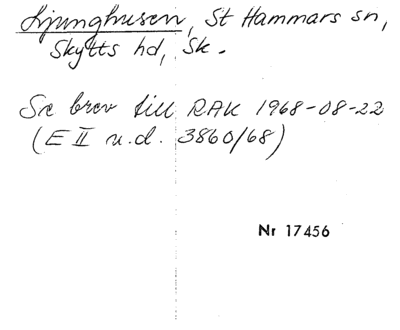 Ljunghusen, St Hammars sn,
Skytts hd, Sk.
Se brev till RAK 1968-08-22
(E II u.d. 3860/68)
Nr 17456